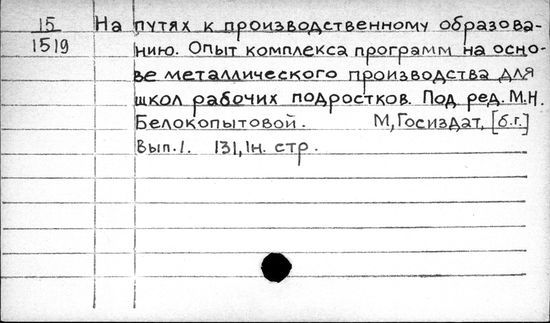 15 На путях к производственному образова-
1519 нию. Опыт комплекса программ на осно-
ве металлического производства для
школ рабочих подростков. Под ред. М.Н.
Белокопытовой. М, Госиздат, [б.г.]
Вып.1. 131, 1н. стр.